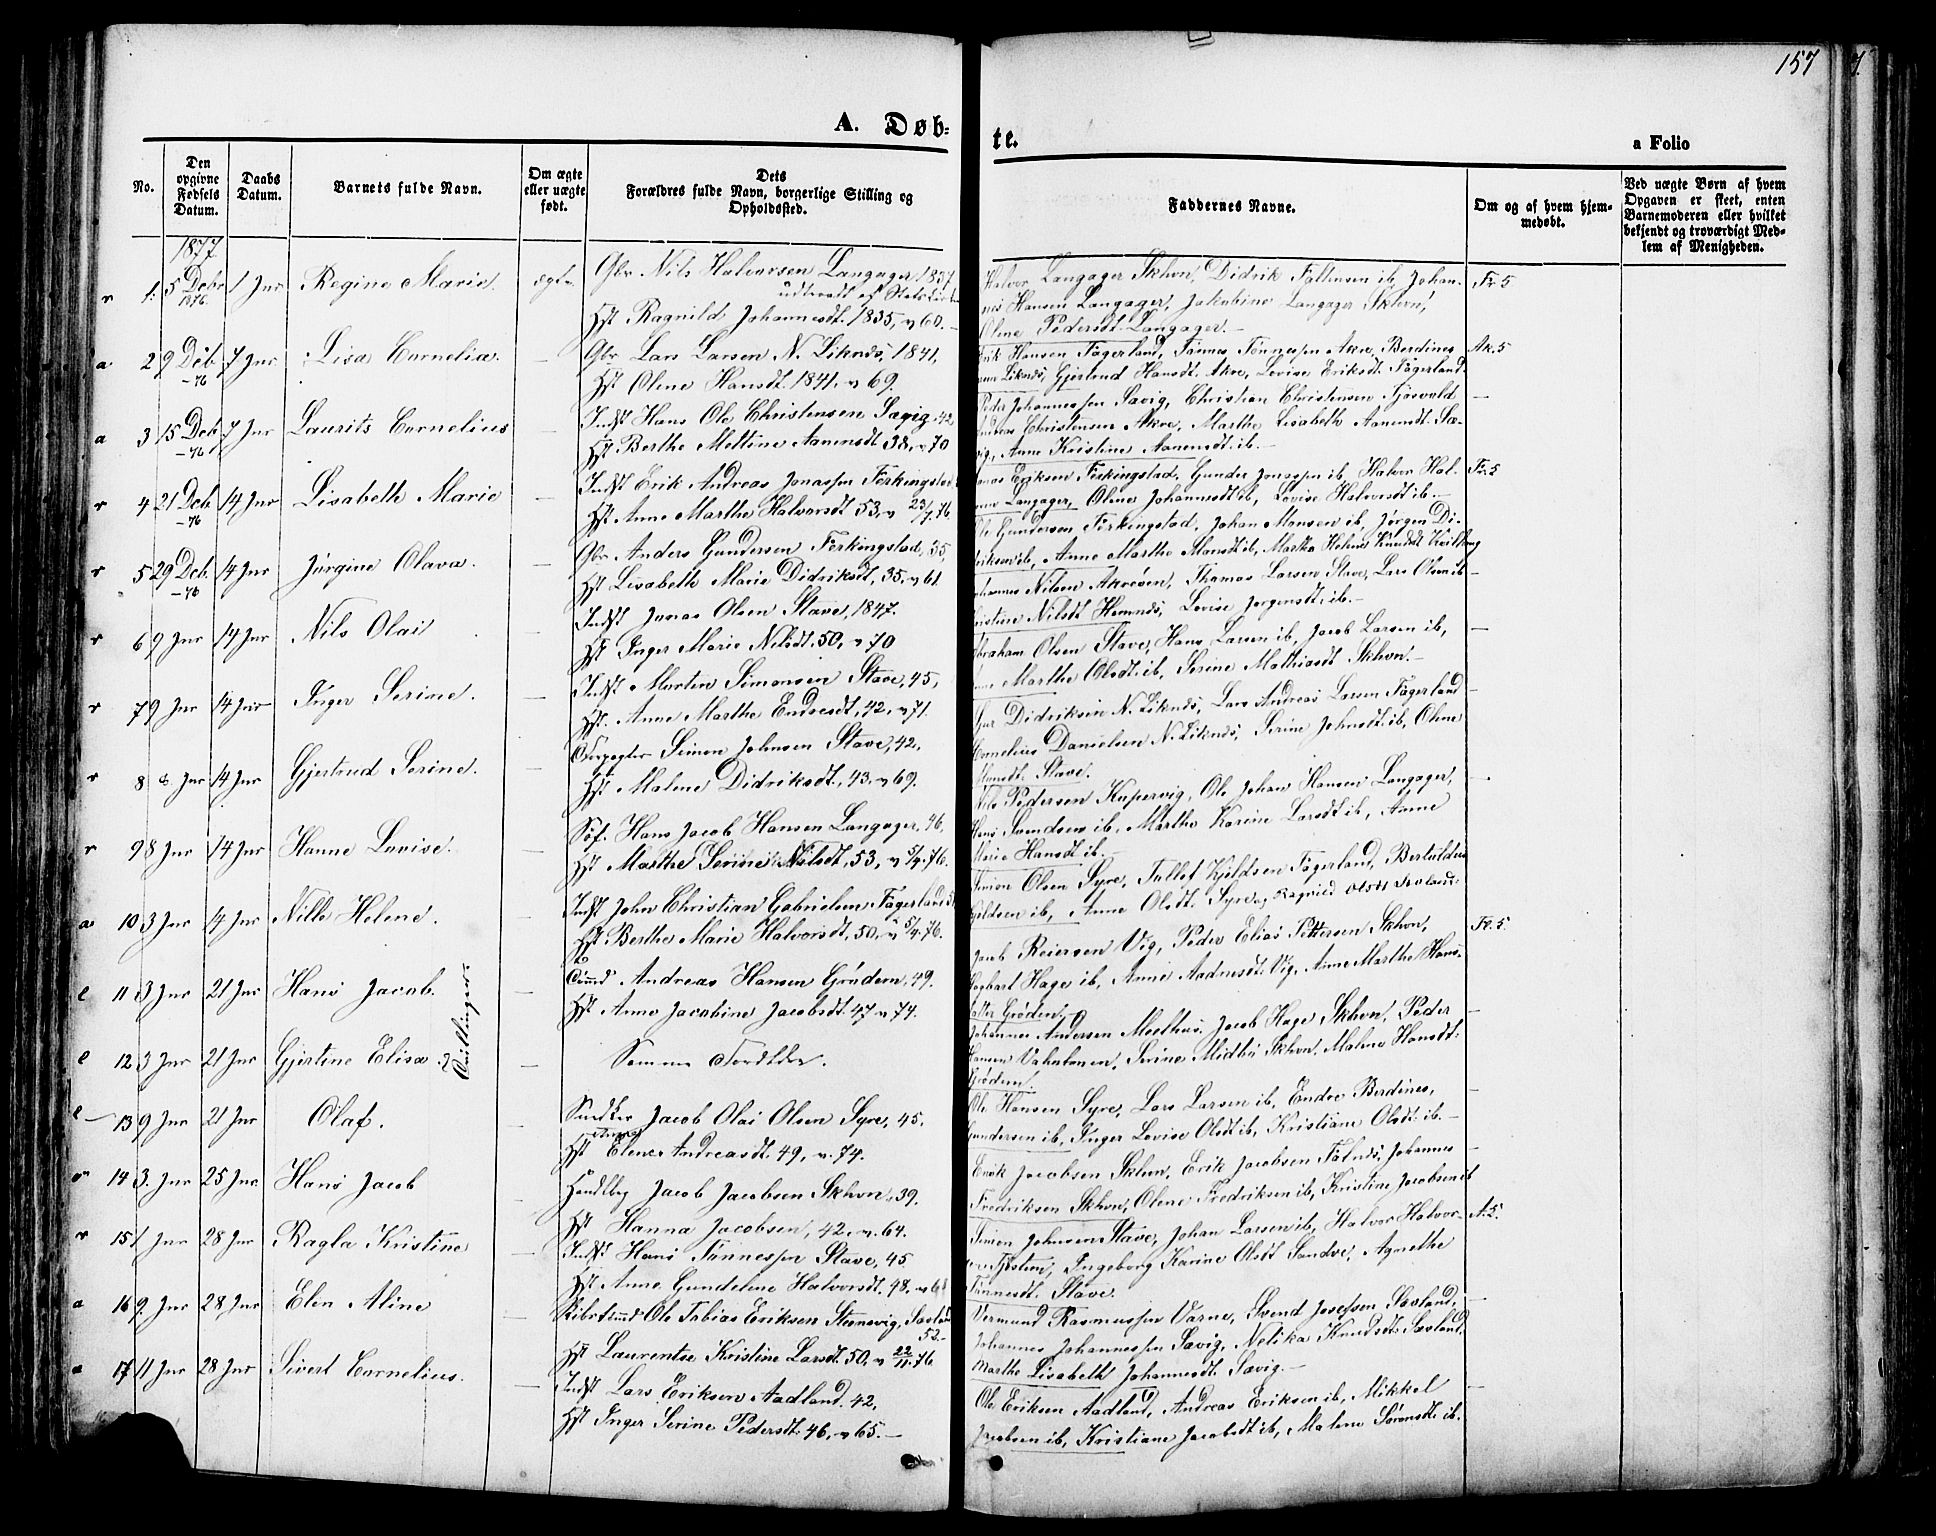 157
A. Døbte.
a Folio
No.
Den opgivne Fødsels Datum.
Daabs Datum.
Barnets fulde Navn.
Om ægte eller uægte født.
Dets Forældres fulde Navn, borgerlige Stilling og Opholdssted.
Faddernes Navne.
Om og af hvem hjemmedøbt.
Ved uægte Børn af hvem Opgaven er skeet, enten Barnemoderen eller hvilket bekjendt og troværdigt Medlem af Menigheden.
1877
r 1. 5 Debr 1876. 1 Jnr Regine Marie. ægte Gbr Nils Halvorsen Langager 1837
udtraadt af Statskirken
Hst Ragnild Johannesdt. 1835, v 60.
Halvor Langager Skhvn, Didrik Fallensen ib, Johan-
nes Hansen Langager, Jakobine Langager Skhvn,
Oline Pedersdt Langager.
Fr. 5
a 2 9 Deb. -76 7 Jnr Lisa Cornelia. — Gbr Lars Larsen N. Liknes, 1841,
Hst Oline Hansdt. 1841, v 69.
Erik Hansen Fagerland, Tønnes Tønnessen Akre, Berdines
Liknes, Gjertrud Hansdt. Akre, Lovise Eriksdt. Fagerland.
Ak. 5
a 3 15 Deb. -76 7 Jnr Laurits Cornelius — Indst Hans Ole Christensen Sævig, 42
Hst Berthe Mettine Aanensdt. 38, v 70
Peder Johannessen Sævig, Christian Christensen Sjøsvold
Andreas Christensen Akre, Marthe Lisabeth Aanensdt. Sæ-
vig, Anne Kristine Aanensdt. ib.
—
r 4 21 Deb. -76 14 Jnr Lisabeth Marie — Indst Erik Andreas Jonassen Ferkingstad
Hst Anne Marthe Halvorsdt 53, v 23/7.76.
Jonas Eriksen Ferkingstad, Gunder Jonassen ib, Halvor Hal-
Langager, Oline Johannesdt ib, Lovise Halvorsdt ib.
Fr. 5
r 5 29 Deb. -76 14 Jnr Jørgine Olava. — Gbr Anders Gundersen Ferkingstad, 35,
Hst Lisabeth Marie Didriksdt, 35, v 61
Ole Gundersen Ferkingstad, Johan Monsen ib, Jørgen Di-
driksen ib, Anne Marthe Monsdt ib, Martha Helene Knudsdt Kvilhaug
r 6 9 Jnr 14 Jnr Nils Olai — Indst Jonas Olsen Stave, 1847.
Hst Inger Marie Nilsdt, 50, v 70
Johannes Nilsen Akreøen, Thomas Larsen Stave, Lars Olsen ib
Kristine Nilsdt Hemnes, Lovise Jørgensdt. ib.
—
r 7 9 Jnr 14 Jnr Inger Serine. — Indst Morten Simonsen Stave, 45,
Hst. Anne Marthe Endresdt, 42, v 71.
Abraham Olsen Stave, Hans Larsen ib, Jacob Larsen ib,
Marthe Olsdt ib, Serine Mathiasdt Skhvn.
—
r 8 8 Jnr 14 Jnr Gjertrud Serine. — Forpagter Simon Johnsen Stave, 42,
Hst Malene Didriksdt, 43, v 69.
Didriksen N. Liknes, Lars Andreas Larsen Fagerland
Cornelius Danielsen N. Liknes, Serine Johnsdt ib, Oline
Stave.
—
r 9 8 Jnr 14 Jnr Hanne Lovise. — Søf. Hans Jacob Hansen Langager, 46,
Hst Marthe Serine Nilsdt, 53, v 5/4.76.
Nils Pedersen Kupervig, Ole Johan Hansen Langager,
Hans Samdsen ib, Marthe Karine Larsdt ib, Anne
Marie Hansdt ib.
—
a 10 3 Jnr 14 Jnr Nille Helene. — Indst John Christian Gabrielsen Fagerland
Hst Berthe Marie Halvorsdt, 50, v 5/4.76.
Simon Olsen Syre, Tallef Kjeldsen Fagerland, Bertuldine
Kjeldsen ib, Anne Olsdt. Syre og Ragnild Olsdt
e 11 3 Jnr 21 Jnr Hans Jacob. — Andreas Hansen Grøden, 49.
Hst Anne Jacobine Jacobsdt. 47 v 74.
Jacob Reiersen Vig, Peder Elias Pettersen Skhvn,
Hage ib, Anne Aadnesdt. Vig, Anne Marthe Hans-
datter Grøden.
Fr. 5
e 12 3 Jnr 21 Jnr Gjertine Elisa Tvillinger — Samme Forældre.
Johannes Andersen Medhus, Jacob Hage Skhvn, Peder
Hansen Vahatonen, Serine Midbø Skhvn, Malene Hansdt.
Grøden.
—
e 13 9 Jnr 21 Jnr Olaf. — Snedker Jacob Olai Olsen Syre, 45.
Hst Elene Andreasdt. 49, v. 74.
Ole Hansen Syre, Lars Larsen ib, Endre Berdines,
Gundersen ib, Inger Lovise Olsdt ib, Kristiane Olsdt. ib.
—
r 14 3. Jnr 25 Jnr. Hans Jacob — Handlbg Jacob Jacobsen Skhvn, 39.
Hst Hanna Jacobsen, 42, v. 64.
Erik Jacobsen Skhvn, Erik Jacobsen Falnes, Johannes
Fredriksen Skhvn, Olene Fredriksen ib, Kristine Jacobsen ib
—
r 15 1 Jnr 28 Jnr Ragla Kristine — Indst Hans Tønnessen Stave, 45.
Hst Anne Gundeline Halvorsdt. 48, v 68
Simon Johnsen Stave, Johan Larsen ib, Halvor Halvor-
sen Tjøsten, Ingeborg Karine Olsdt Sandve, Agnethe
Tønnesdt. Stave.
A. 5.
a 16 9. Jnr 28 Jnr Elen Aline — Skibstømmd Ole Tobias Eriksen Stensvig, Sæveland
52.
Hst Laurentse Kristine Larsdt. 50, v 22/11.76.
Vermund Rasmussen Varne, Svend Josefsen Sæveland,
Johannes Johannessen Sævig, Nelika Knudsdt Sæveland,
Marthe Lisabeth Johannesdt. Sævig.
—
a 17 11 Jnr 28 Jnr Sivert Cornelius. — Indst Lars Eriksen Aadland. 42,
Hst Inger Serine Pedersdt. 46, v 65.
Ole Eriksen Aadland, Andreas Eriksen ib, Mikkel
Jacobsen ib, Kristiane Jacobsdt ib, Malene Sørensdt. ib.
—